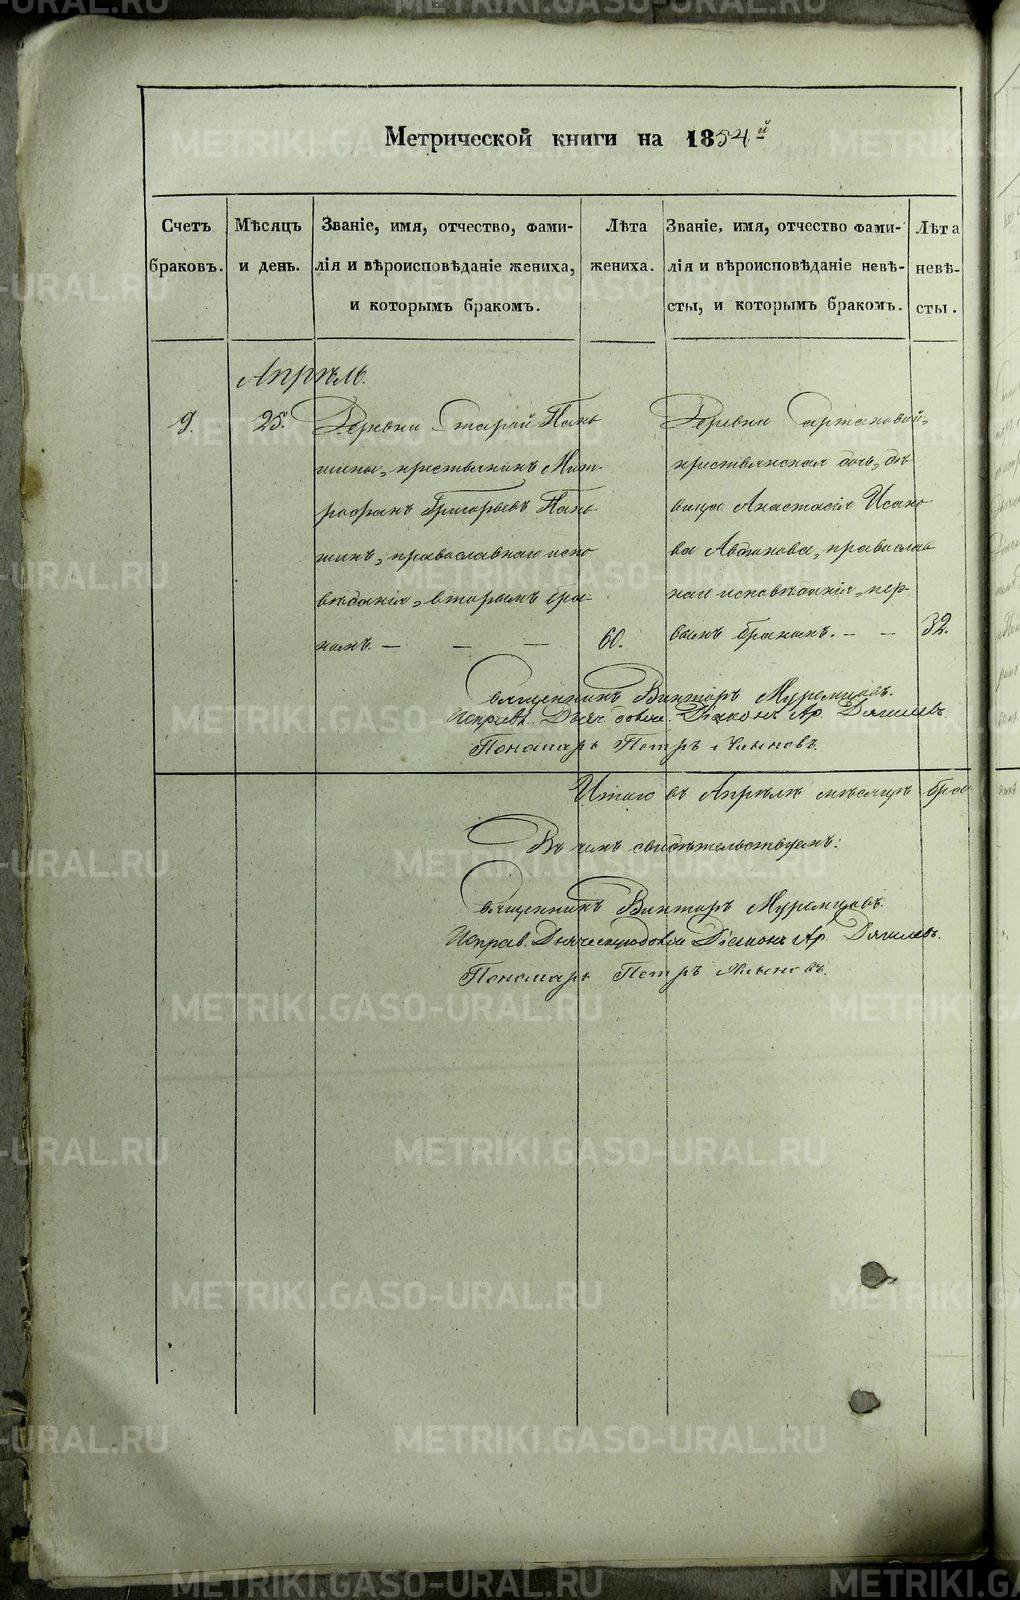 Метрической книги на 1854й
Счетъ браковъ.
Мѣсяцъ и день.
Званіе, имя, отчество, фами-
лія и вѣроисповѣданіе жениха,
и которымъ бракомъ.
Лѣта жениха.
Званіе, имя, отчество фами-
лія и вѣроисповѣданіе невѣ-
сты, и которымъ бракомъ.
Лѣта невѣ-
сты.
Апрѣль.
9.
25.
Деревни Старой Пань
шины, крестьянинъ Мит-
рофанъ Григорьевъ Пань-
шинъ, православнаго испо
вѣданія, вторымъ бра-
комъ. — — —
60.
Деревни
крестьянская дочь, дѣ
вица Анастасія Исако
ва православ
наго исповѣданія, пер-
вымъ бракомъ. — —
32.
Священникъ Викторъ Муромцовъ.
Діаконъ Ар. Дягилевъ.
Пономарь Петръ
Итого въ Апрѣлѣ мѣсяцѣ брак
Въ чемъ свидѣтельствуемъ:
Священникъ Викторъ Муромцовъ.
Исправ. Діаконъ Ар. Дягилевъ.
Пономарь Петръ
METRIKI.GASO-URAL.RU